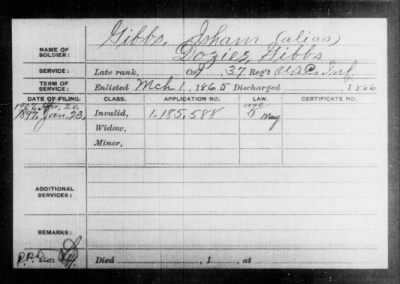 Gibbs, Isham (alias)
NAME OF SOLDIER: Dozier Gibbs
SERVICE: Late rank, Co. , 37 Reg't U.S.C. Inf.
TERM OF SERVICE: Enlisted Mch 1, 1865 Discharged , 1866
DATE OF FILING. CLASS. APPLICATION NO. LAW. CERTIFICATE NO.
1897, Jan. 23, Invalid, 1.185,588
Widow,
Minor,
ADDITIONAL SERVICES:
REMARKS:
Died , 1 , at